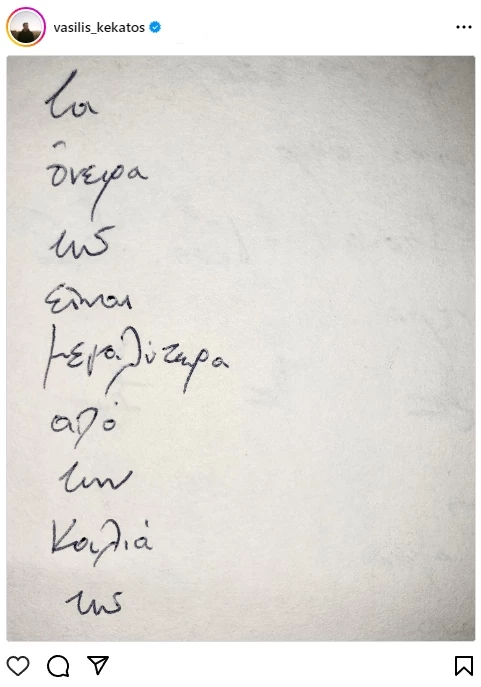 vasilis_kekatos
τα
όνειρα
της
είναι
μεγαλύτερα
από
την
κοιλιά
της